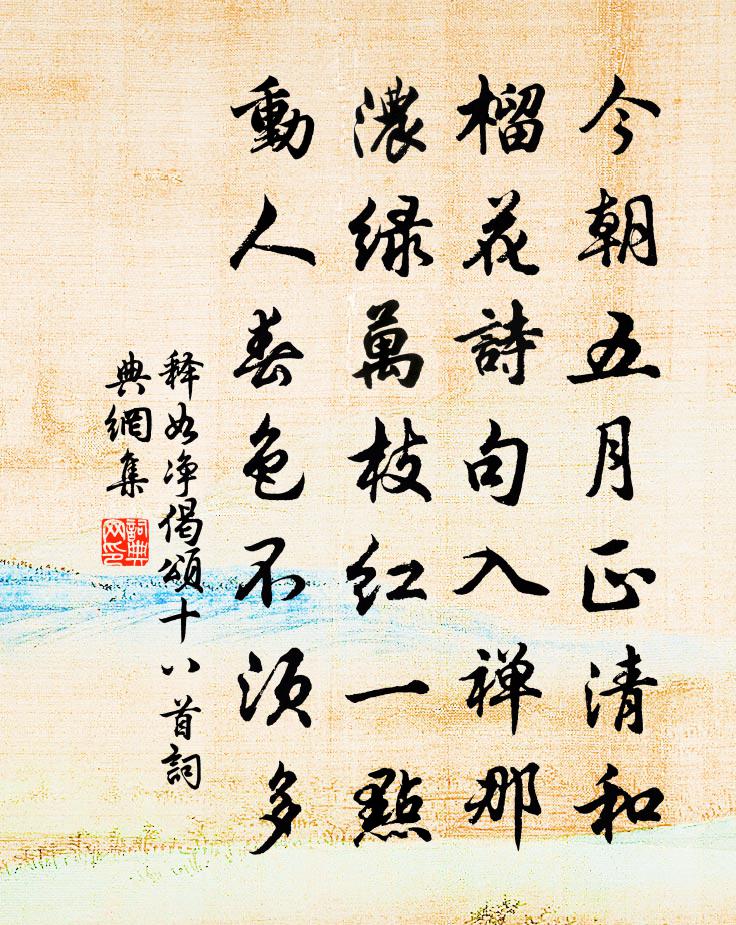 今朝五月正清和
榴花詩句入禅那
濃緑萬枝红一點
動人春色不須多
释如净偈頌十八首詞
典網集
詞典
网印